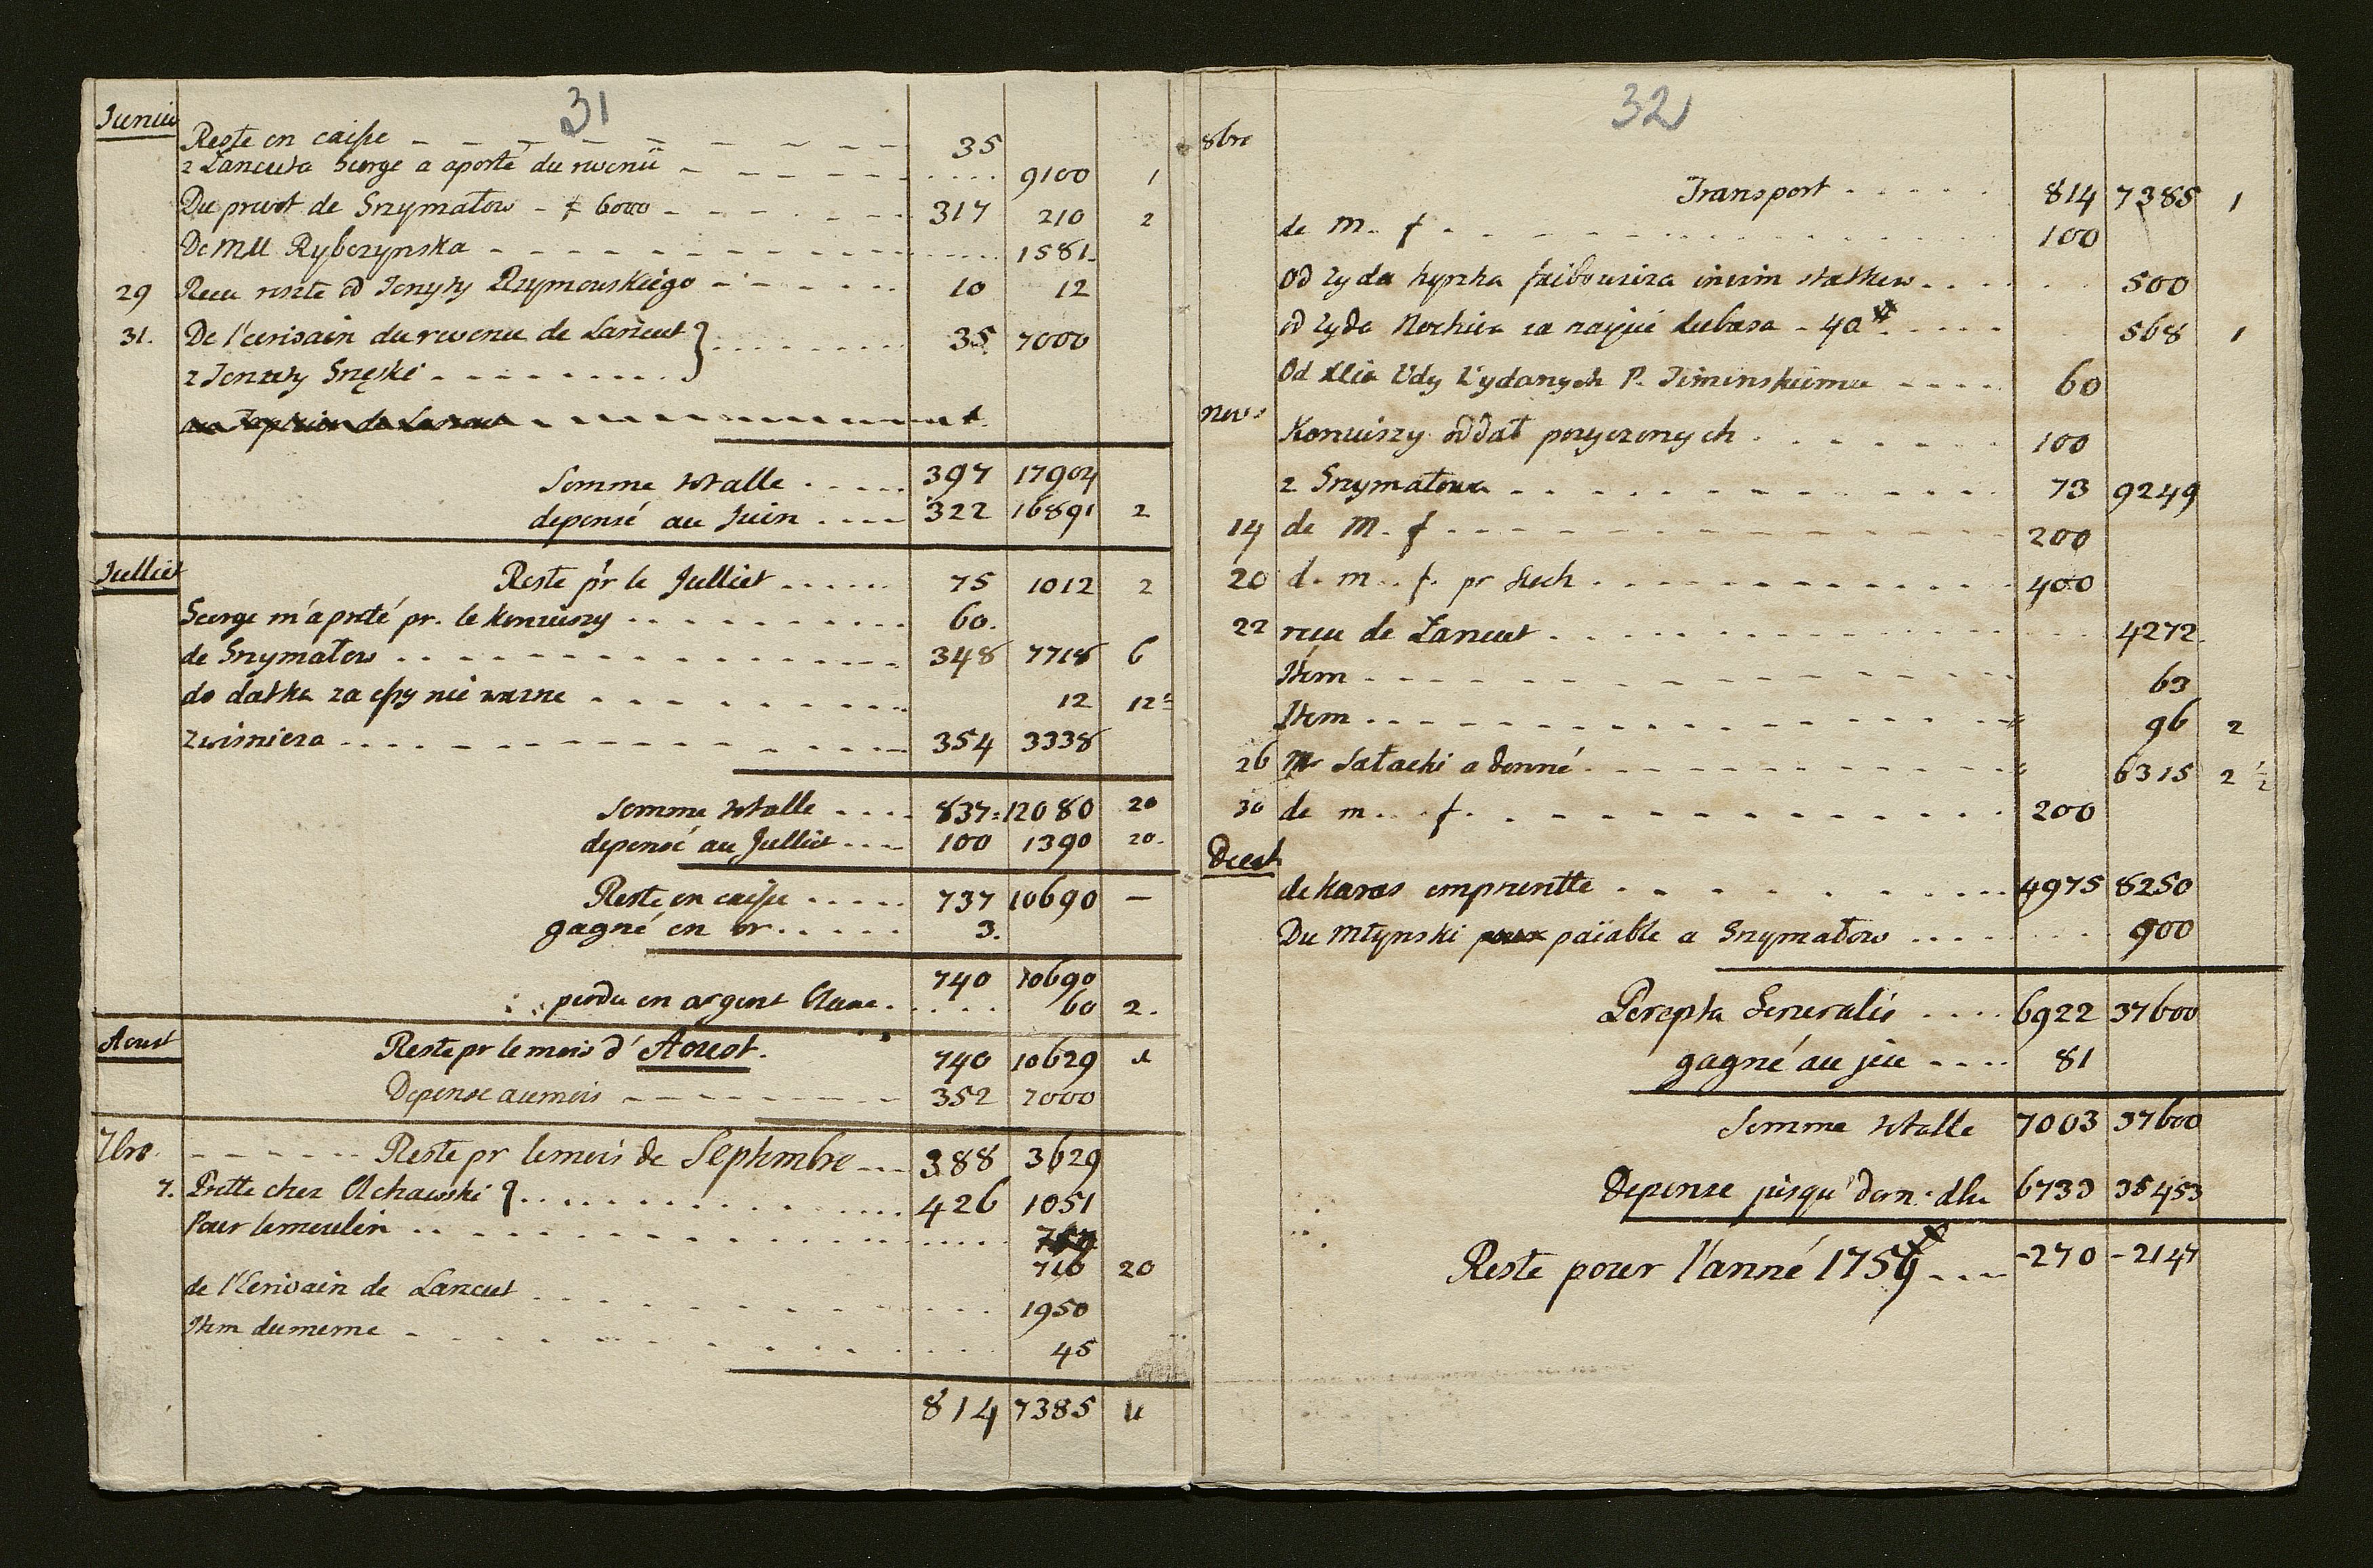 31
Junius
Reste en caisse 35
z Lancuta Serge a aporté du revenü 9100 1
Du prevot de Szymałow - f 6000 317 210 2
De Mll Rybczynska 1581.
29 Recu reszte od Jenyty Rzymowskiego 10 12
31. De l'ecrivain du revenu de Lancut } 35 7000
z Jenuty Snęski
Somme totalle 397 17904
depensé au Juin 322 16891 2
Julliet
Reste pr le Julliet 75 1012 2
Serge m'a preté pr. le Koniuszy 60.
de Szymałow 348 7718 6
do datku za cfzy nie wazne 12 12
354 3338
Somme totalle 837 12080 20
depensé au Julliet 100 1390 20.
Reste en caisse 737 10690 —
gagné en or 3.
740 10690
perdu en argent blanc 60 2.
Aoust
Reste pr le mois d'Aoust. 740 10629
Depense au mois 352 7000
7bre.
Reste pr le mois de Septembre 388 3629
7. Prette chez Olchawski } 426 1051
Pour le moulin
716 20
de l'Ecrivain de Lancut 1950
Item du meme 45
814 7385
32
8bre
Transport 814 7385 1
de M. f 100
od zyda 500
od zyda za 40 568 1
Od Wydanych P. Jiminskiemu 60
Nov
Koniuszy oddał pozyczonych 100
z Szymałowa 73 9249
14 de M. f 200
20 d. m. f. pr 400
22 reçu de Lancut 4272
Item 63
Item 96 2
26 Mr Satacki a donné 6315 2 1/2
30 de m. f. 200
Decemb
de Karas emprentte 4975 8250
Du Młynski païable a Szymałow 900
Percepta Generalis 6922 37600
gagné au jeu 81
Somme totalle 7003 37600
Depense jusqu' 6733 35453
Reste pour l'anné 1759 -270 -2147